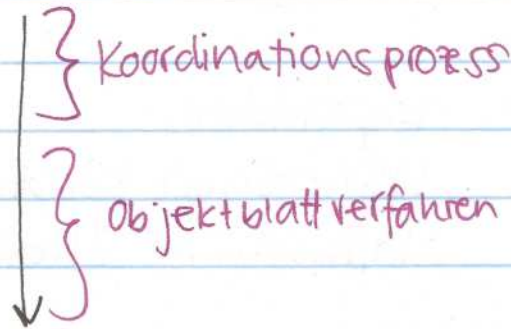 Koordinationsprozess
Objektblattverfahren